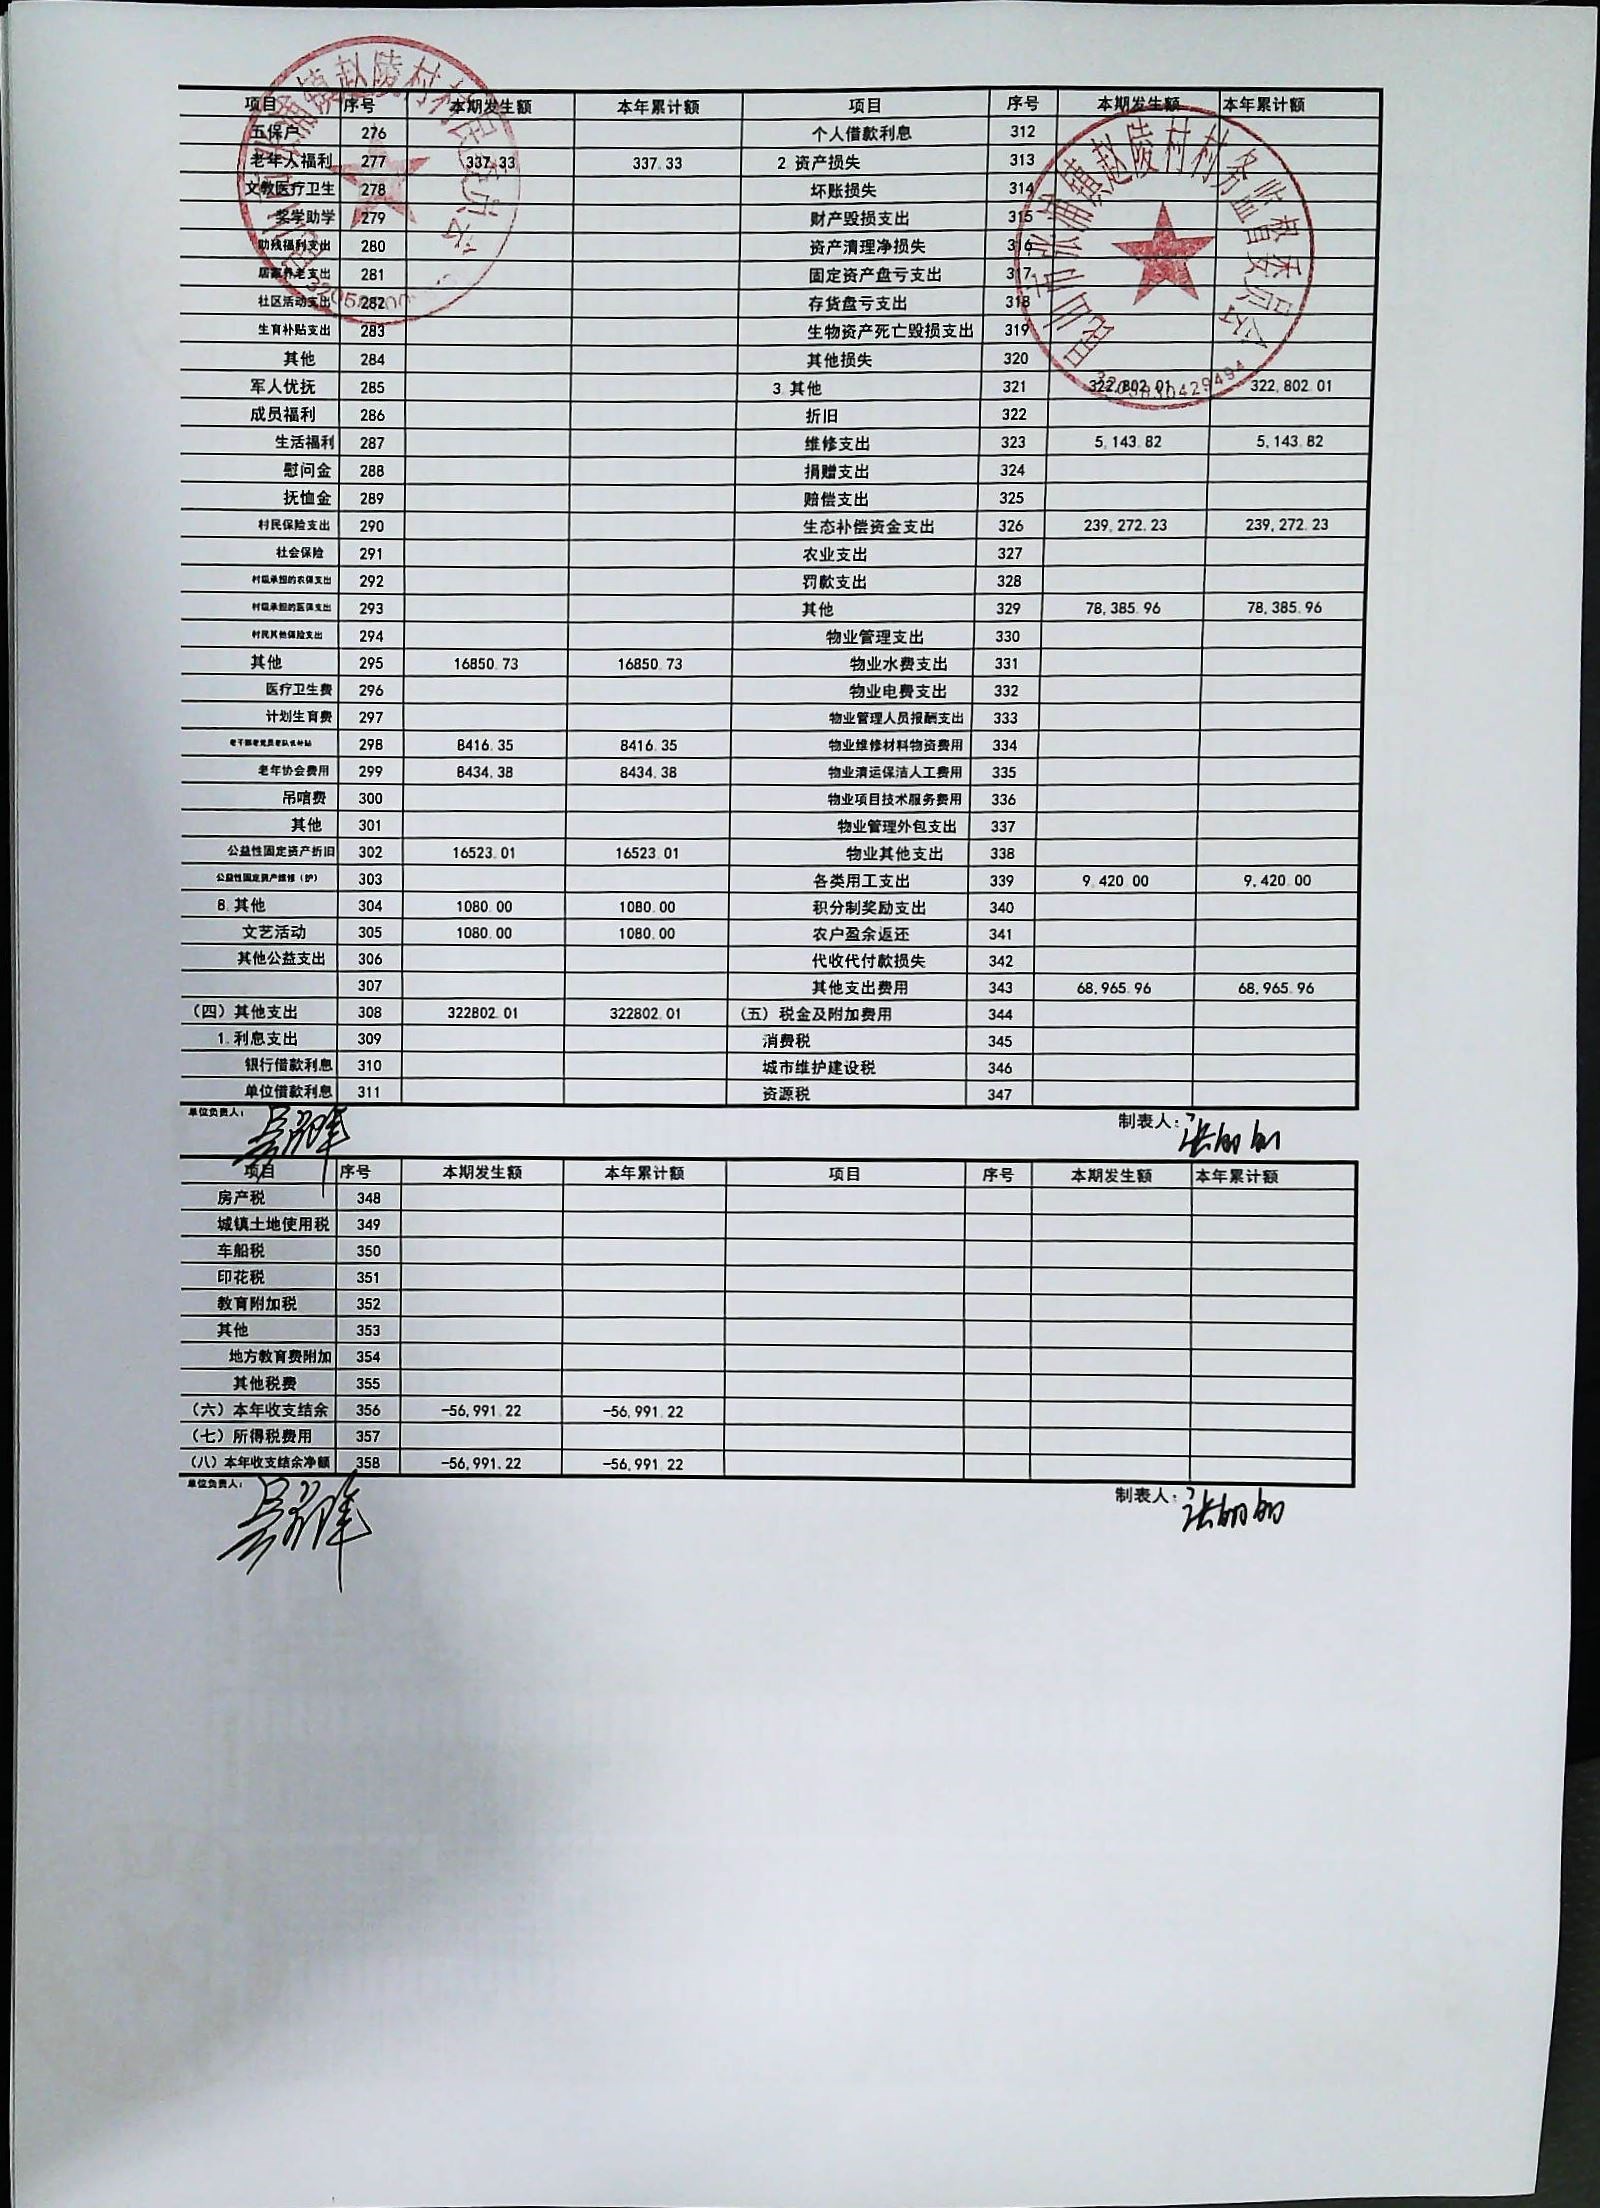 项目 序号 本期发生额 本年累计额 项目 序号 本期发生额 本年累计额
五保户 276 个人借款利息 312
老年人福利 277 337.33 337.33 2 资产损失 313
文教医疗卫生 278 坏账损失 314
奖学助学 279 财产毁损支出 315
助残福利支出 280 资产清理净损失 316
居家养老支出 281 固定资产盘亏支出 317
社区活动支出 282 存货盘亏支出 318
生育补贴支出 283 生物资产死亡毁损支出 319
其他 284 其他损失 320
军人优抚 285 3 其他 321 322,802.01 322,802.01
成员福利 286 折旧 322
生活福利 287 维修支出 323 5,143.82 5,143.82
慰问金 288 捐赠支出 324
抚恤金 289 赔偿支出 325
村民保险支出 290 生态补偿资金支出 326 239,272.23 239,272.23
社会保险 291 农业支出 327
村级承担的农保支出 292 罚款支出 328
村级承担的医保支出 293 其他 329 78,385.96 78,385.96
村民其他保险支出 294 物业管理支出 330
其他 295 16850.73 16850.73 物业水费支出 331
医疗卫生费 296 物业电费支出 332
计划生育费 297 物业管理人员报酬支出 333
298 8416.35 8416.35 物业维修材料物资费用 334
老年协会费用 299 8434.38 8434.38 物业清运保洁人工费用 335
吊唁费 300 物业项目技术服务费用 336
其他 301 物业管理外包支出 337
公益性固定资产折旧 302 16523.01 16523.01 物业其他支出 338
公益性固定资产维修（护） 303 各类用工支出 339 9,420.00 9,420.00
8.其他 304 1080.00 1080.00 积分制奖励支出 340
文艺活动 305 1080.00 1080.00 农户盈余返还 341
其他公益支出 306 代收代付款损失 342
307 其他支出费用 343 68,965.96 68,965.96
（四）其他支出 308 322802.01 322802.01 （五）税金及附加费用 344
1.利息支出 309 消费税 345
银行借款利息 310 城市维护建设税 346
单位借款利息 311 资源税 347
单位负责人： 制表人：
项目 序号 本期发生额 本年累计额 项目 序号 本期发生额 本年累计额
房产税 348
城镇土地使用税 349
车船税 350
印花税 351
教育附加税 352
其他 353
地方教育费附加 354
其他税费 355
（六）本年收支结余 356 -56,991.22 -56,991.22
（七）所得税费用 357
（八）本年收支结余净额 358 -56,991.22 -56,991.22
单位负责人： 制表人：
镇赵陵村村民委员会
昆山市张浦镇赵陵村村务监督委员会